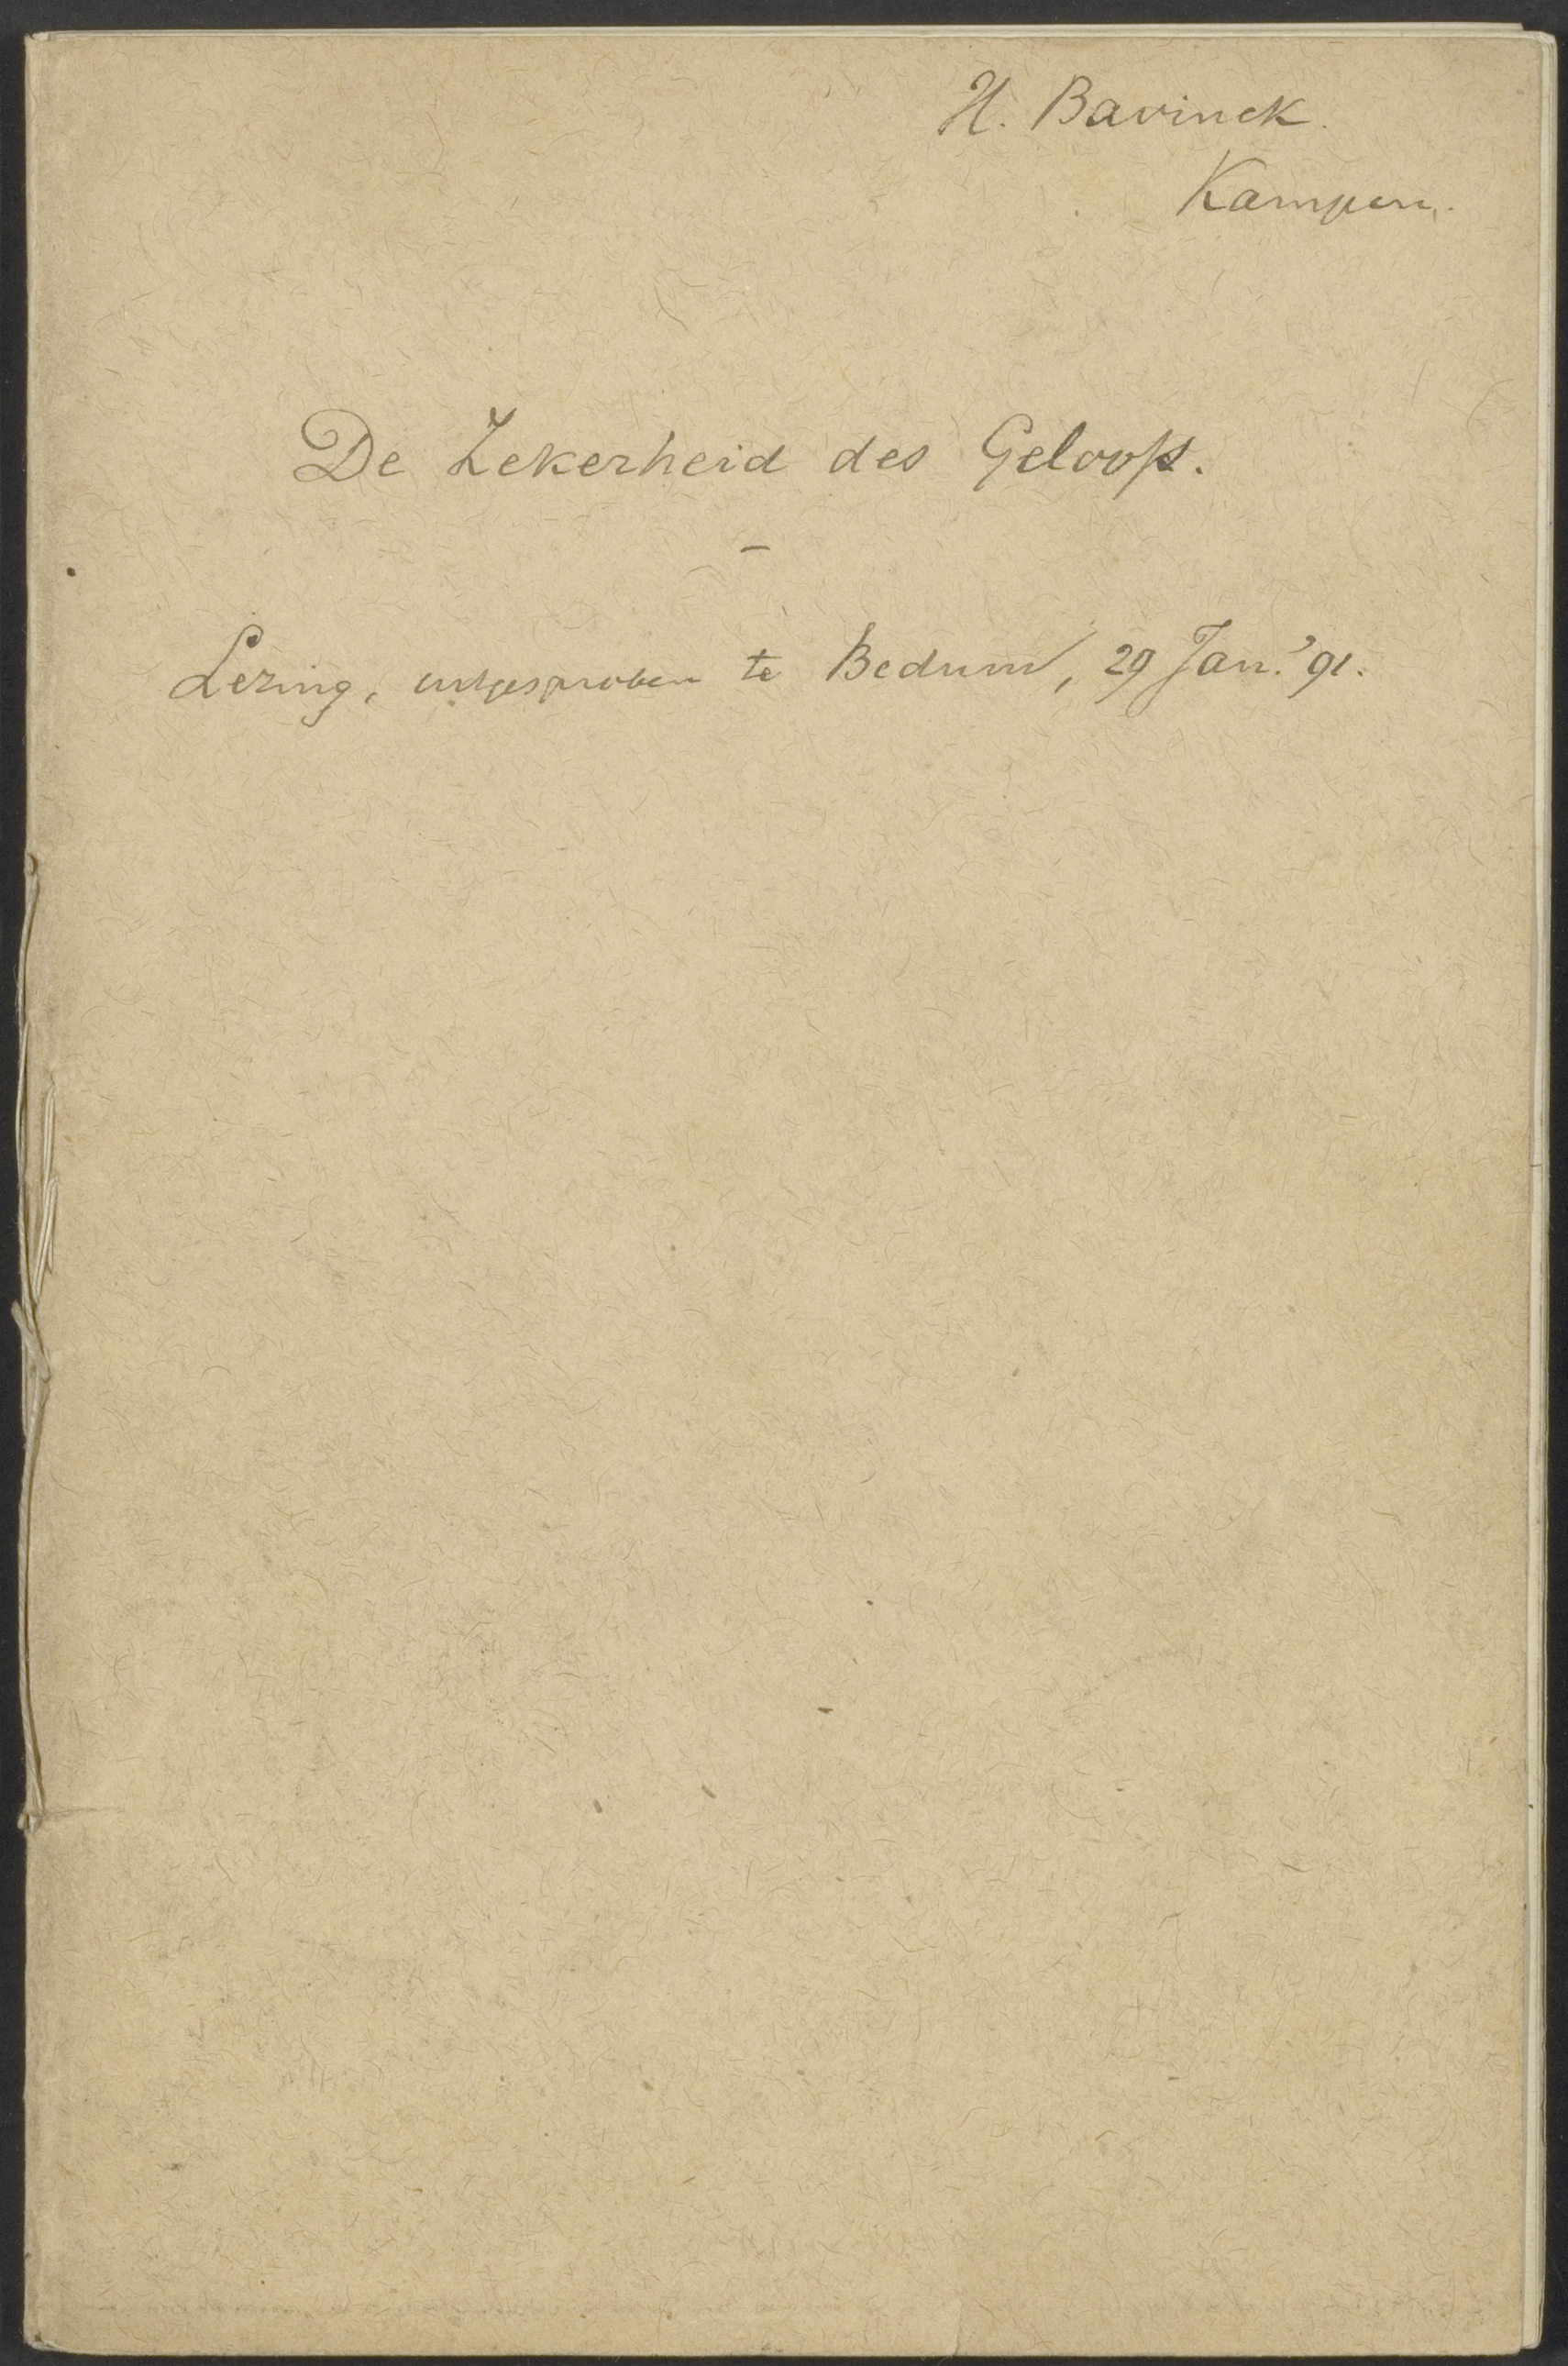 H. Bavinck.
Kampen.
De Zekerheid des Geloofs.
Lezing, uitgesproken te Bedum, 29 Jan. '91.